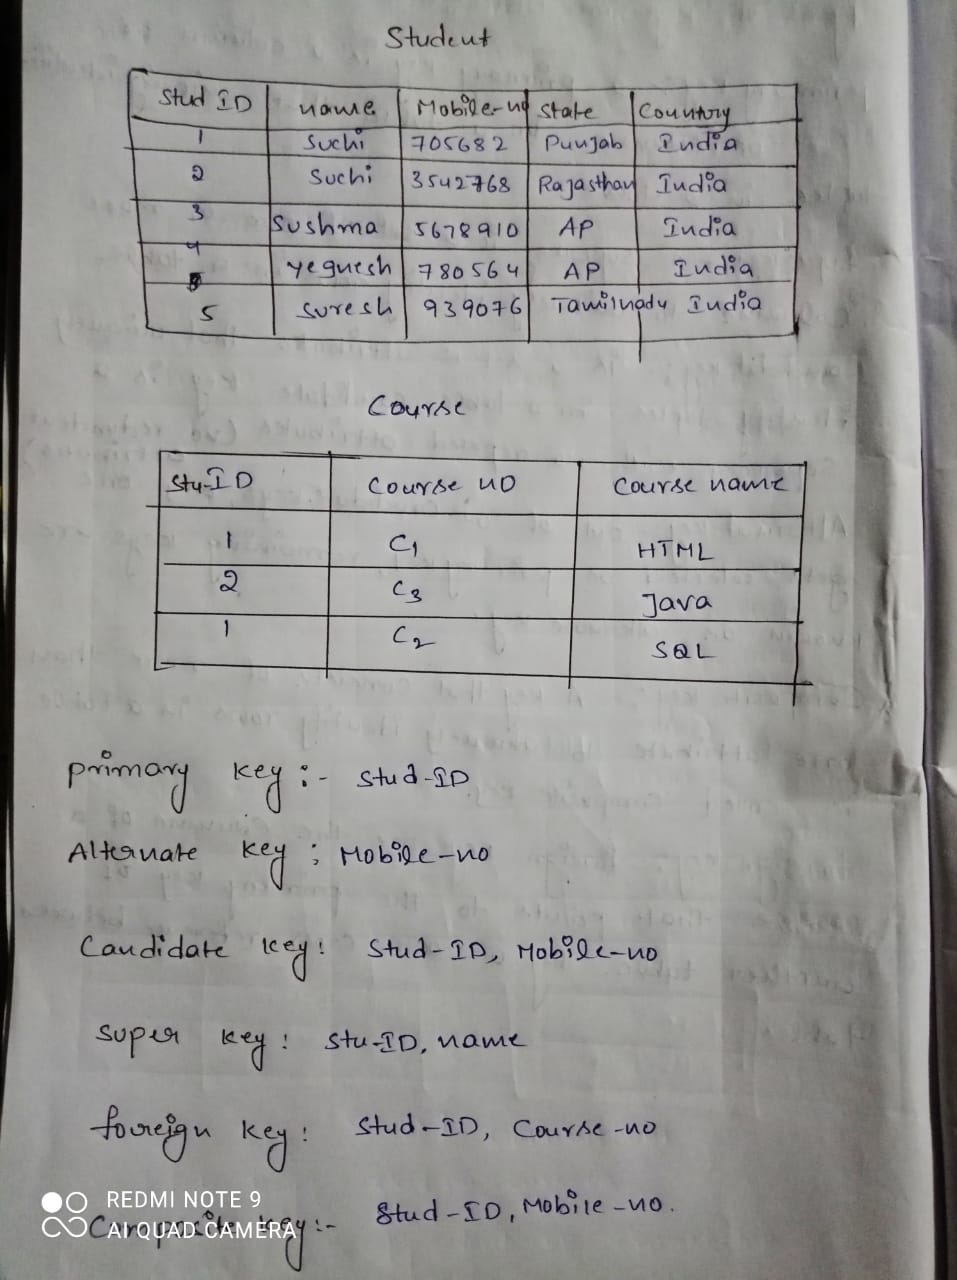 Student
Stud ID name Mobile-no State Country
1 Suchi 705682 Punjab India
2 Suchi 3542768 Rajasthan India
3 Sushma 5678910 AP India
4 yegnesh 780564 AP India
5 Suresh 939076 Tamilnadu India
Course
Stu-ID Course no Course name
1 C1 HTML
2 C3 Java
1 C2 SQL
primary key :- Stud-ID
Alternate key ; Mobile-no
Candidate key: Stud-ID, Mobile-no
Super key: Stu-ID, name
foreign key: Stud-ID, Course-no
REDMI NOTE 9
AI QUAD CAMERA
key:- Stud-ID, Mobile-no.